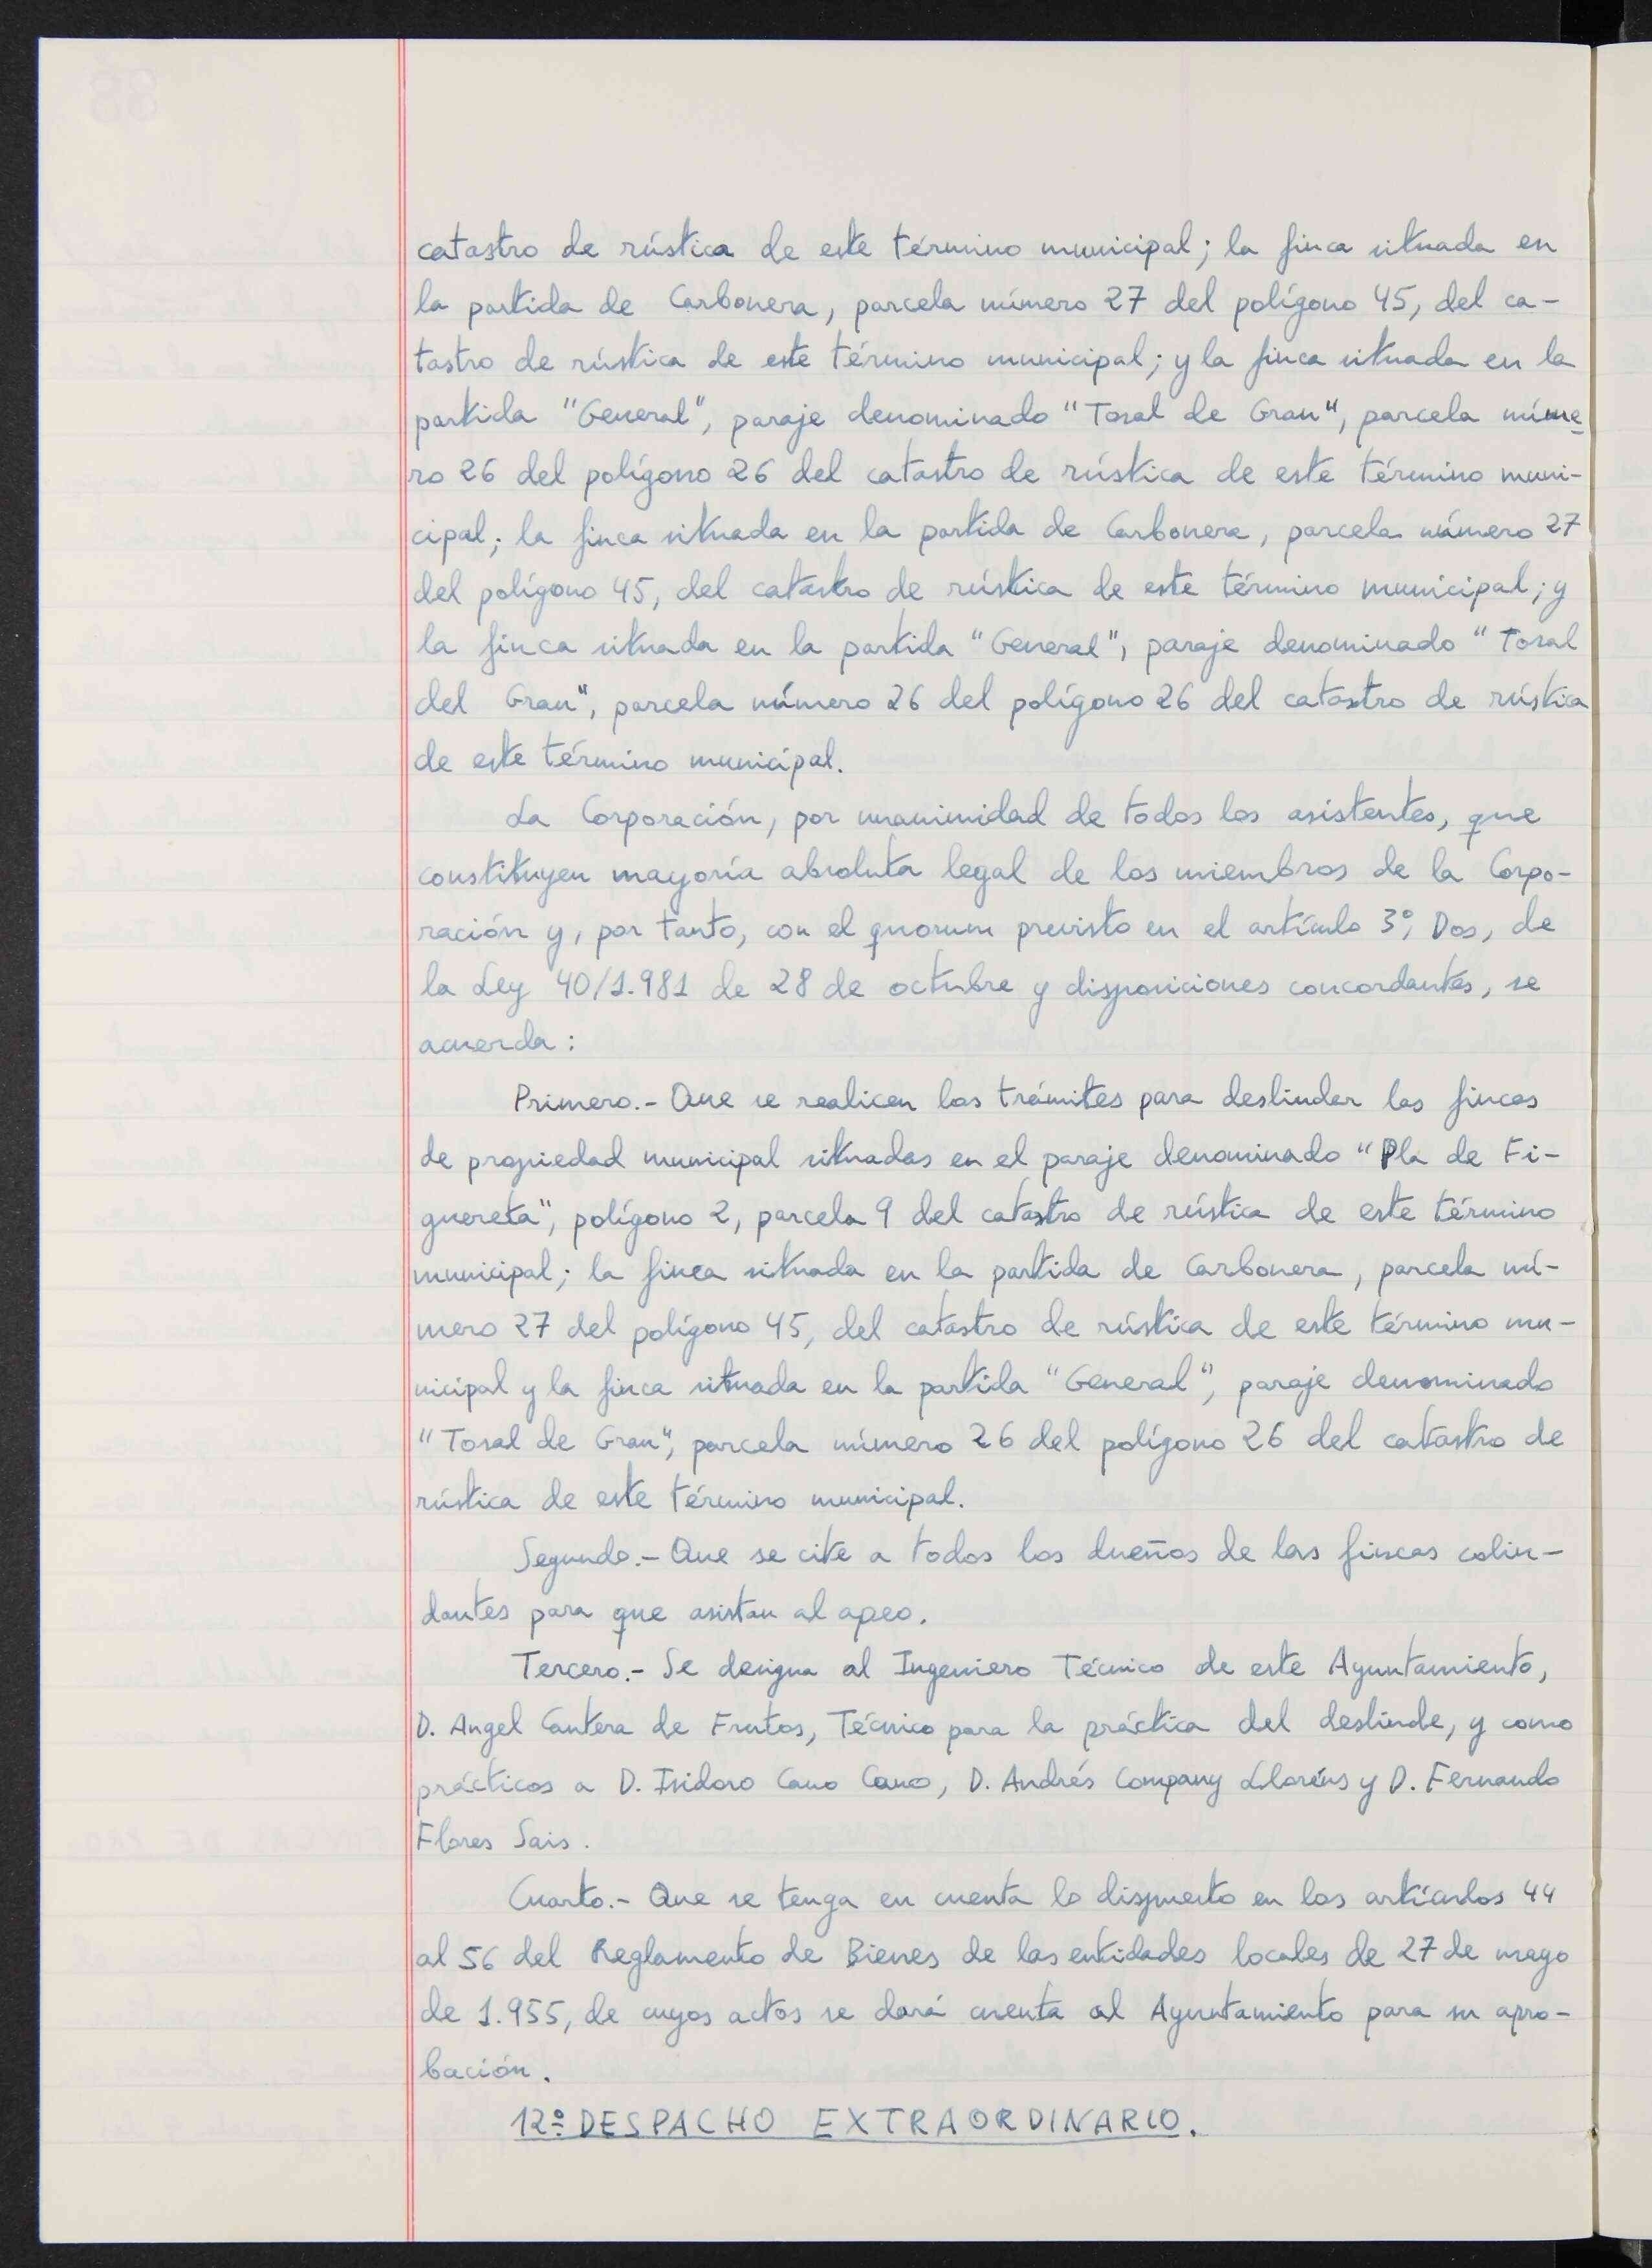 catastro de rústica de este término municipal; la finca situada en
la partida de Carbonera, parcela número 27 del polígono 45, del ca-
tastro de rústica de este término municipal; y la finca situada en la
partida "General", paraje denominado "Tosal de Grau", parcela núme
ro 26 del polígono 26 del catastro de rústica de este término muni-
cipal; la finca situada en la partida de Carbonera, parcela número 27
del polígono 45, del catastro de rústica de este término municipal; y
la finca situada en la partida "General", paraje denominado "Tosal
del Grau", parcela número 26 del polígono 26 del catastro de rústica
de este término municipal.
La Corporación, por unanimidad de todos los asistentes, que
constituyen mayoría absoluta legal de los miembros de la Corpo-
ración y, por tanto, con el quorum previsto en el artículo 3º, Dos, de
la Ley 40/1.981 de 28 de octubre y disposiciones concordantes, se
acuerda:
Primero.- Que se realicen los trámites para deslindar las fincas
de propiedad municipal situadas en el paraje denominado "Pla de Fi-
guereta", polígono 2, parcela 9 del catastro de rústica de este término
municipal; la finca situada en la partida de Carbonera, parcela nú-
mero 27 del polígono 45, del catastro de rústica de este término mu-
nicipal y la finca situada en la partida "General", paraje denominado
"Tosal de Grau", parcela número 26 del polígono 26 del catastro de
rústica de este término municipal.
Segundo.- Que se cite a todos los dueños de las fincas colin-
dantes para que asistan al apeo.
Tercero.- Se designa al Ingeniero Técnico de este Ayuntamiento,
D. Angel Cantera de Frutos, Técnico para la práctica del deslinde, y como
prácticos a D. Isidoro Cano Cano, D. Andrés Company Lloréns y D. Fernando
Flores Sais.
Cuarto.- Que se tenga en cuenta lo dispuesto en los artículos 44
al 56 del Reglamento de Bienes de las entidades locales de 27 de mayo
de 1.955, de cuyos actos se dará cuenta al Ayuntamiento para su apro-
bación.
12º DESPACHO EXTRAORDINARIO.